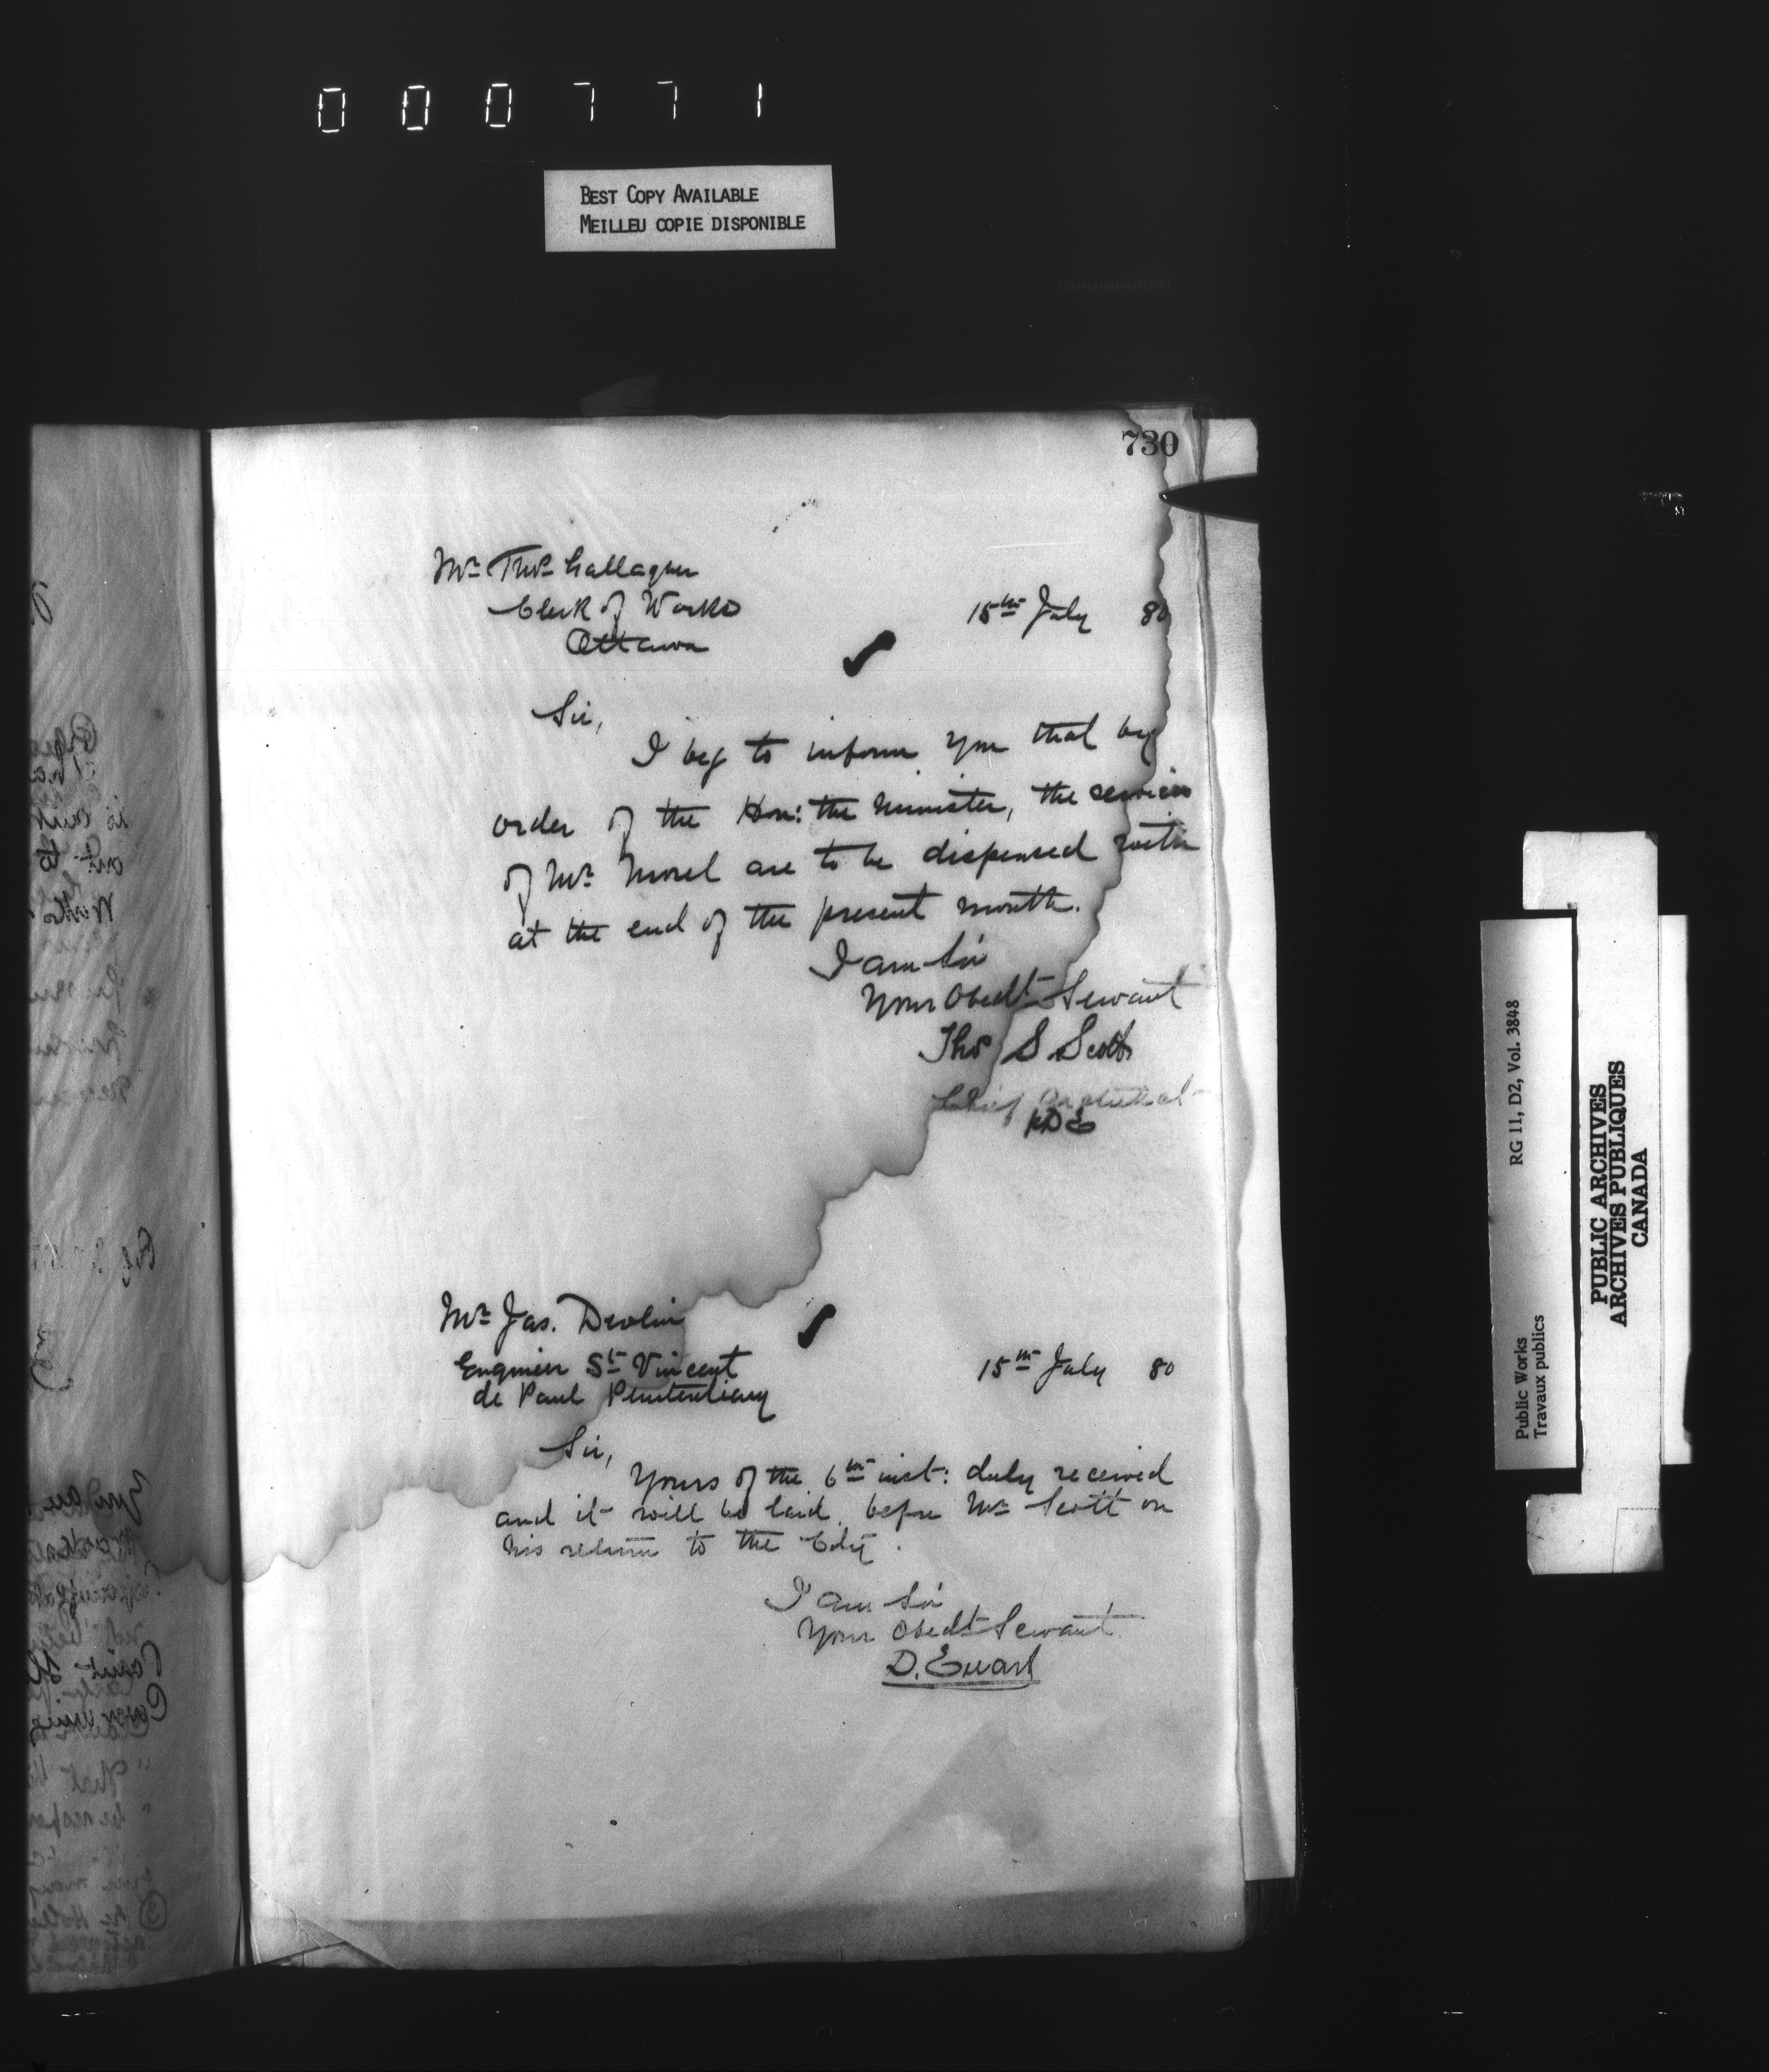 000771
BEST COPY AVAILABLE
MEILLEU COPIE DISPONIBLE
730
Mr. Thos. Gallagher
Clerk of Works
Ottawa
15th July 80
Sir,
I beg to inform you that by
order of the Hon: the Minister, the services
of Mr. Morel are to be dispensed with
at the end of the present month.
I am Sir
Your Obedt Servant
Thos S Scott
Chief Architect
Mr. Jas. Devlin
Engineer St. Vincent
de Paul Penitentiary
15th July 80
Sir,
Yours of the 6th inst: duly received
and it will be laid before Mr. Scott on
his return to the City.
I am Sir
Your Obedt Servant
D. Ewart
Public Works
Travaux publics
RG 11, D2, Vol. 3848
PUBLIC ARCHIVES
ARCHIVES PUBLIQUES
CANADA